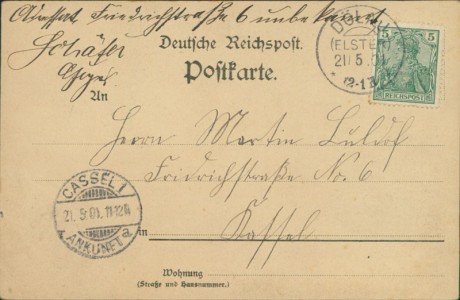 Friedrichstraße 6 unbekannt
Schäfer
Deutsche Reichspost.
Postkarte.
(ELSTER)
5 5
REICHSPOST
An
Herrn Martin
Fridrichstraße No. 6
in Kassel
CASSEL 1
ANKUNFT
Wohnung
(Straße und Hausnummer.)